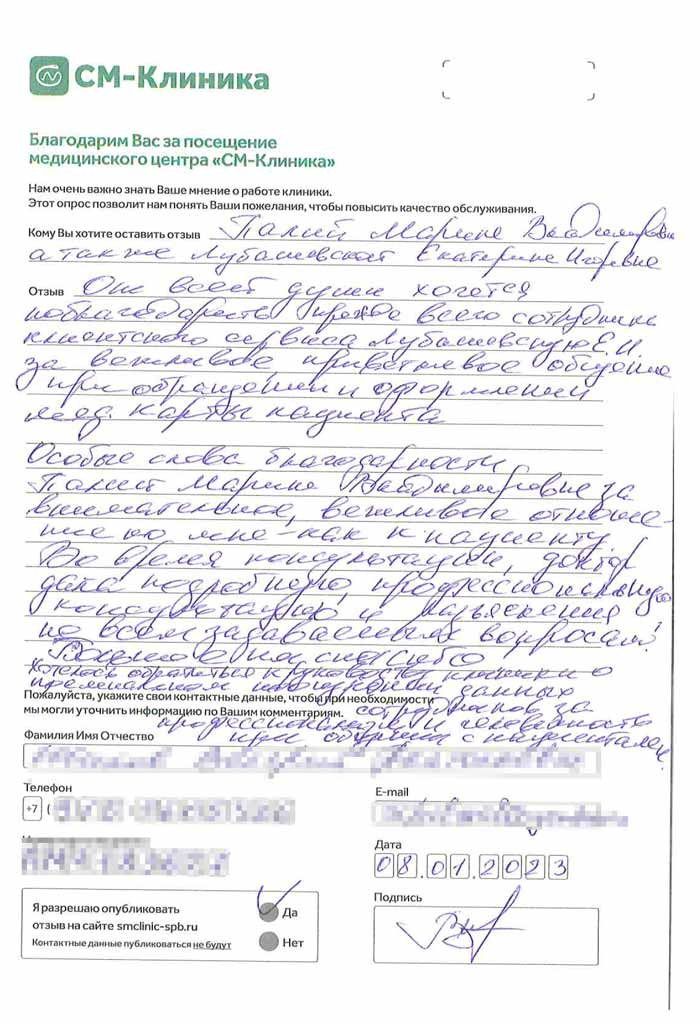 СМ-Клиника
Благодарим Вас за посещение
медицинского центра «СМ-Клиника»
Нам очень важно знать Ваше мнение о работе клиники.
Этот опрос позволит нам понять Ваши пожелания, чтобы повысить качество обслуживания.
Кому Вы хотите оставить отзыв Палий Марине Владимировне
а также Лубашевской Екатерине Игоревне
Отзыв От всей души хочется
поблагодарить прежде всего сотрудника
клиентского сервиса Лубашевскую Е.И.
за вежливое приветливое общение
при обращении и оформлении
мед. карты пациента
Особые слова благодарности
Палий Марине Владимировне за
внимательное, вежливое отноше-
ние ко мне - как к пациенту.
Во время консультации, доктор
дала подробную, профессиональную
консультацию и разъяснения
по всем задаваемым вопросам!
спасибо
Хотелось обратиться к руководству клиники о
премиальном поощрении данных
Пожалуйста, укажите свои контактные данные, чтобы при необходимости
сотрудников за
мы могли уточнить информацию по Вашим комментариям.
профессионализм и человечность
при общении с пациентами.
Фамилия Имя Отчество
Телефон
+7 (
E-mail
Дата
08.01.2023
Я разрешаю опубликовать
отзыв на сайте smclinic-spb.ru
Контактные данные публиковаться не будут
Да
Нет
Подпись